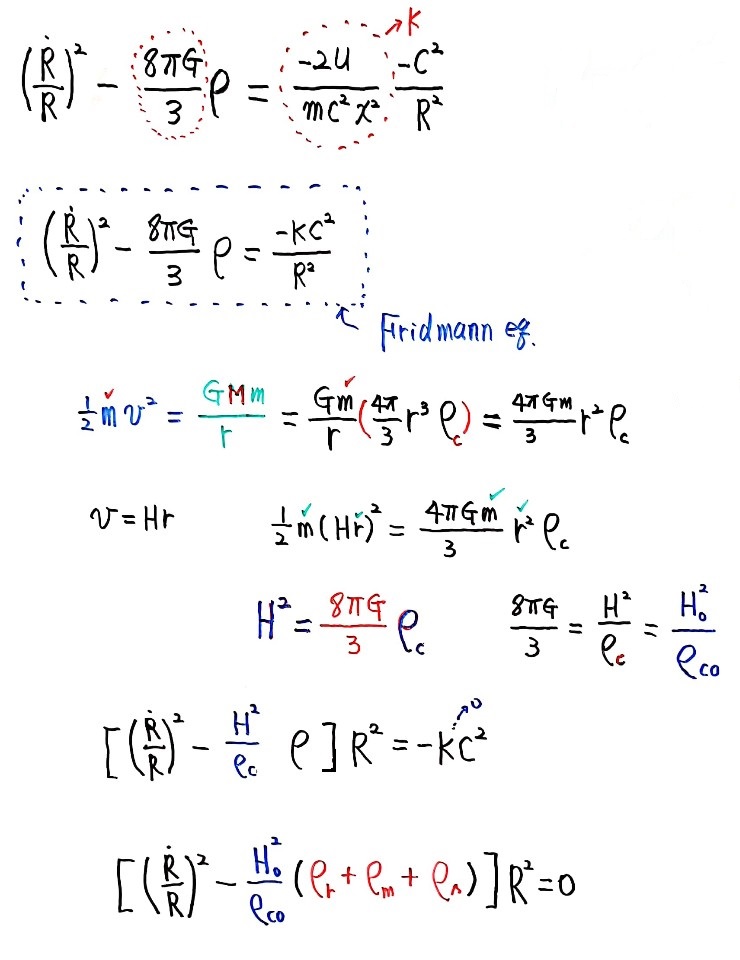 (Ṙ/R)² − 8πG/3 ρ = −2U/mc²x² −C²/R² → K
(Ṙ/R)² − 8πG/3 ρ = −KC²/R²
← Fridmann eq.
½ m v² = GMm/r = Gm/r (4π/3 r³ ρc) = 4πGm/3 r² ρc
v = Hr ½ m (Hr)² = 4πGm/3 r² ρc
H² = 8πG/3 ρc 8πG/3 = H²/ρc = H₀²/ρco
[(Ṙ/R)² − H²/ρc ρ] R² = −KC² → 0
[(Ṙ/R)² − H₀²/ρco (ρr + ρm + ρΛ)] R² = 0